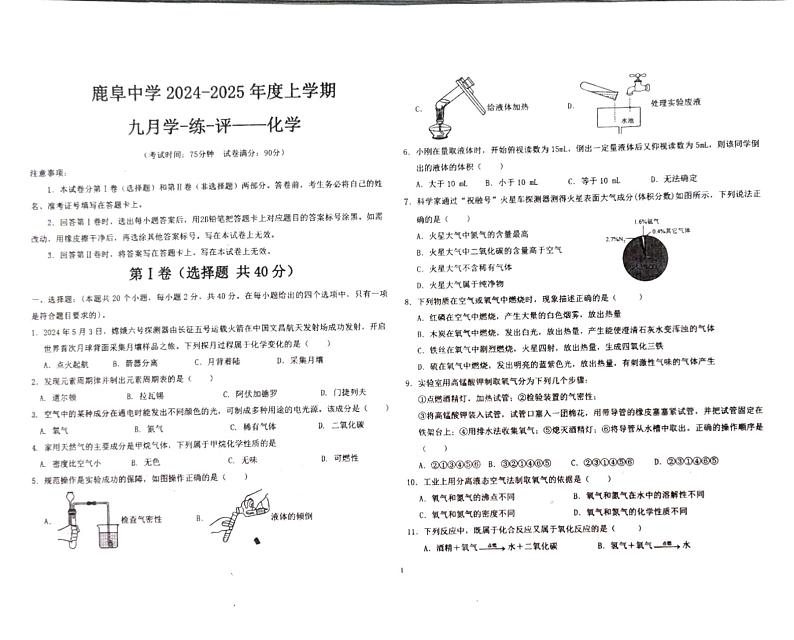 鹿阜中学 2024-2025 年度上学期
九月学-练-评——化学
(考试时间：75分钟  试卷满分：90分)
注意事项：
1．本试卷分第Ⅰ卷（选择题）和第Ⅱ卷（非选择题）两部分。答卷前，考生务必将自己的姓
名、准考证号填写在答题卡上。
2．回答第Ⅰ卷时，选出每小题答案后，用2B铅笔把答题卡上对应题目的答案标号涂黑。如需
改动，用橡皮擦干净后，再选涂其他答案标号。写在本试卷上无效。
3．回答第Ⅱ卷时，将答案写在答题卡上。写在本试卷上无效。
第Ⅰ卷（选择题 共40分）
一、选择题：（本题共20个小题，每小题2分，共40分。在每小题给出的四个选项中，只有一项
是符合题目要求的）。
1．2024年5月3日，嫦娥六号探测器由长征五号运载火箭在中国文昌航天发射场成功发射，开启
世界首次月球背面采集月壤样品之旅。下列探月过程属于化学变化的是（  ）
A．点火起航  B．箭器分离  C．月背着陆  D．采集月壤
2．发现元素周期律并制出元素周期表的是（  ）
A．道尔顿  B．拉瓦锡  C．阿伏加德罗  D．门捷列夫
3．空气中的某种成分在通电时能发出不同颜色的光，可制成多种用途的电光源。该成分是（  ）
A．氧气  B．氮气  C．稀有气体  D．二氧化碳
4．家用天然气的主要成分是甲烷气体，下列属于甲烷化学性质的是
A．密度比空气小  B．无色  C．无味  D．可燃性
5．规范操作是实验成功的保障，如图操作正确的是（  ）
A．检查气密性  B．液体的倾倒
C．给液体加热  D．处理实验废液
水池
6．小刚在量取液体时，开始俯视读数为15mL，倒出一定量液体后又仰视读数为5mL，则该同学倒
出的液体的体积（  ）
A．大于10 mL  B．小于10 mL  C．等于10 mL  D．无法确定
7．科学家通过“祝融号”火星车探测器测得火星表面大气成分(体积分数)如图所示，下列说法正
确的是（  ）
1.6%氩气
0.4%其它气体
2.7%N₂
A．火星大气中氮气的含量最高
B．火星大气中二氧化碳的含量高于空气
C．火星大气不含稀有气体
D．火星大气属于纯净物
8．下列物质在空气或氧气中燃烧时，现象描述正确的是（  ）
A．红磷在空气中燃烧，产生大量的白色烟雾，放出热量
B．木炭在氧气中燃烧，发出白光，放出热量，产生能使澄清石灰水变浑浊的气体
C．铁丝在氧气中剧烈燃烧，火星四射，放出热量，生成四氧化三铁
D．硫在氧气中燃烧，发出明亮的蓝紫色光，放出热量，有刺激性气味的气体产生
9．实验室用高锰酸钾制取氧气分为下列几个步骤：
①点燃酒精灯，加热试管；②检验装置的气密性；
③将高锰酸钾装入试管，试管口塞入一团棉花，用带导管的橡皮塞塞紧试管，并把试管固定在
铁架台上；④用排水法收集氧气；⑤熄灭酒精灯；⑥将导管从水槽中取出。正确的操作顺序是
（  ）
A．②①③④⑤⑥  B．③②①④⑥⑤  C．②③①④⑤⑥  D．②③①④⑥⑤
10．工业上用分离液态空气法制取氧气的依据是（  ）
A．氧气和氮气的沸点不同  B．氧气和氮气在水中的溶解性不同
C．氧气和氮气的密度不同  D．氧气和氮气的化学性质不同
11．下列反应中，既属于化合反应又属于氧化反应的是（  ）
A．酒精＋氧气 点燃→ 水＋二氧化碳  B．氢气＋氧气 点燃→ 水
1